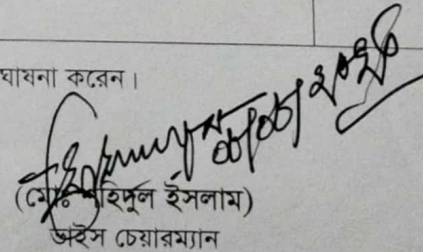 ঘোষনা করেন।
(মোঃ শহিদুল ইসলাম)
ভাইস চেয়ারম্যান